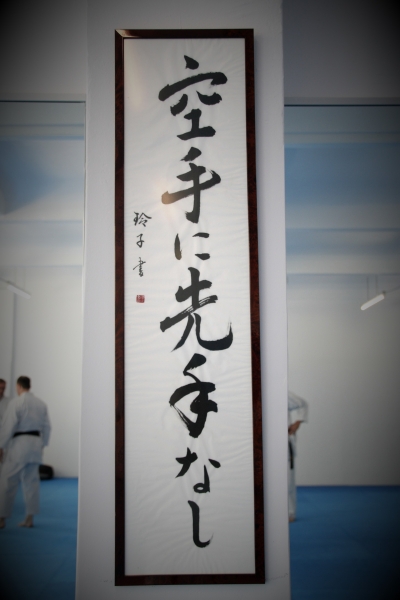 空手に先手なし
玲子書